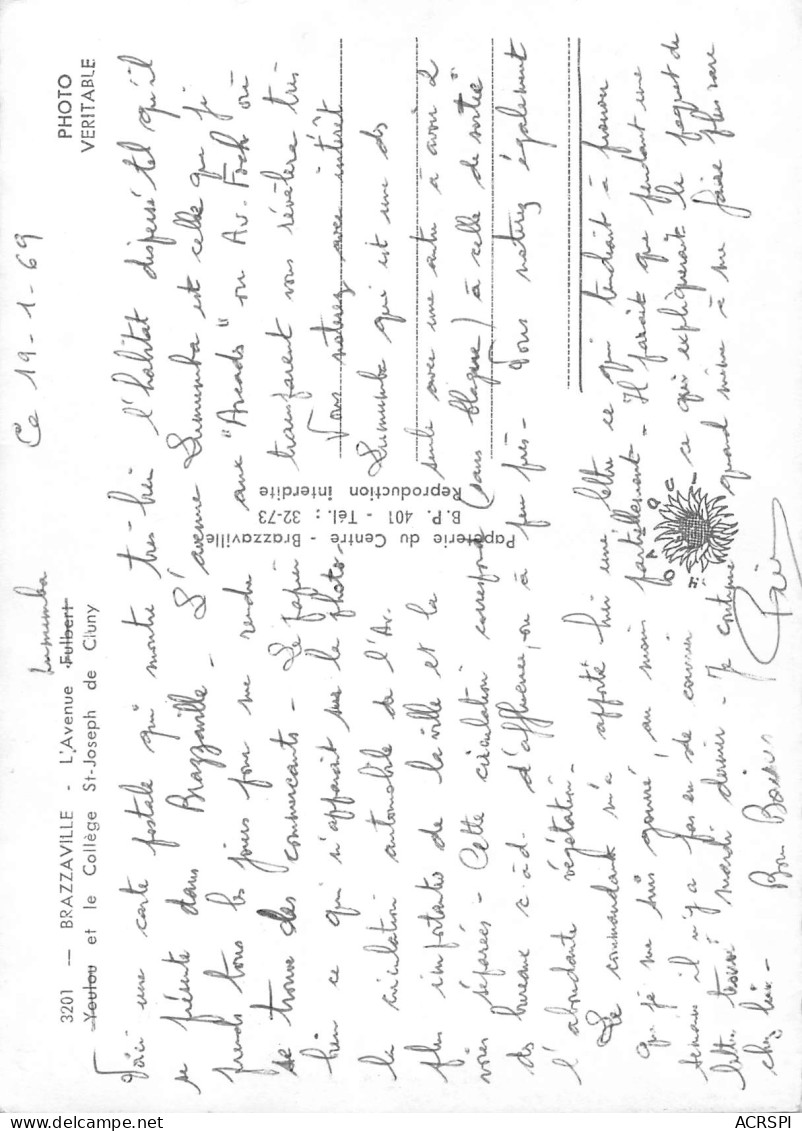 Ce 19-1-69
PHOTO
VERITABLE
Lumumba
3201 — BRAZZAVILLE - L'Avenue Fulbert
Youlou et le Collège St-Joseph de Cluny
Voici une carte postale qui montre très-bien l'habitat dispersé tel qu'il
se présente dans Brazzaville - L'avenue Lumumba est celle que je
prends tous les jours pour me rendre aux "Amads" ou Av. Foch où
se trouve des commerçants - Le papier transparent vous révèlera très-
bien ce qui n'apparait sur la photo - Vous noterez avec intérêt
la circulation automobile de l'Av. Lumumba qui est une des
plus importantes de la ville et la seule avec une autre à avoir 2
voies séparées - Cette circulation correspond (sans blague) à celle de sortie
des bureaux c.à.d. d'affluence, ou à peu près - Vous noterez également
l'abondante végétation -
Le commandant m'a apporté hier une lettre ce qui tendrait à prouver
que je me suis gouré, au moins partiellement - Il parait que pendant une
semaine il n'y a pas eu de courrier ce qui expliquerait le paquet de
lettres trouvé mardi dernier - Je continue quand même à me faire plus rare
chez lui -
Bons Baisers
Papeterie du Centre - Brazzaville
B.P. 401 - Tél. : 32-73
Reproduction interdite
ACRSPI